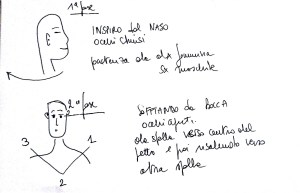 1ª fase
INSPIRO dal NASO
occhi chiusi
partenza da
2ª fase
SOFFIANDO da BOCCA
occhi aperti.
da spalla verso centro del
petto e poi risalendo verso
altra spalla
3
1
2